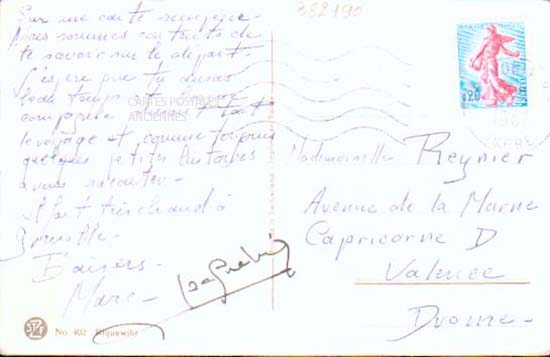 Sur une carte
Nous sommes contents de
te savoir sur le départ.
J'espère que tu auras
beau temps et bonne
compagnie tout
le voyage et comme toujours
quelques petites histoires
à nous raconter -
Il fait très chaud à
Grenoble -
Baisers -
Marc -
No. 402 Riquewihr
CARTES POSTALES
ANCIENNES
382190
0,20
Mademoiselle Reynier
Avenue de la Marne
Capricorne D
Valence
Drome -